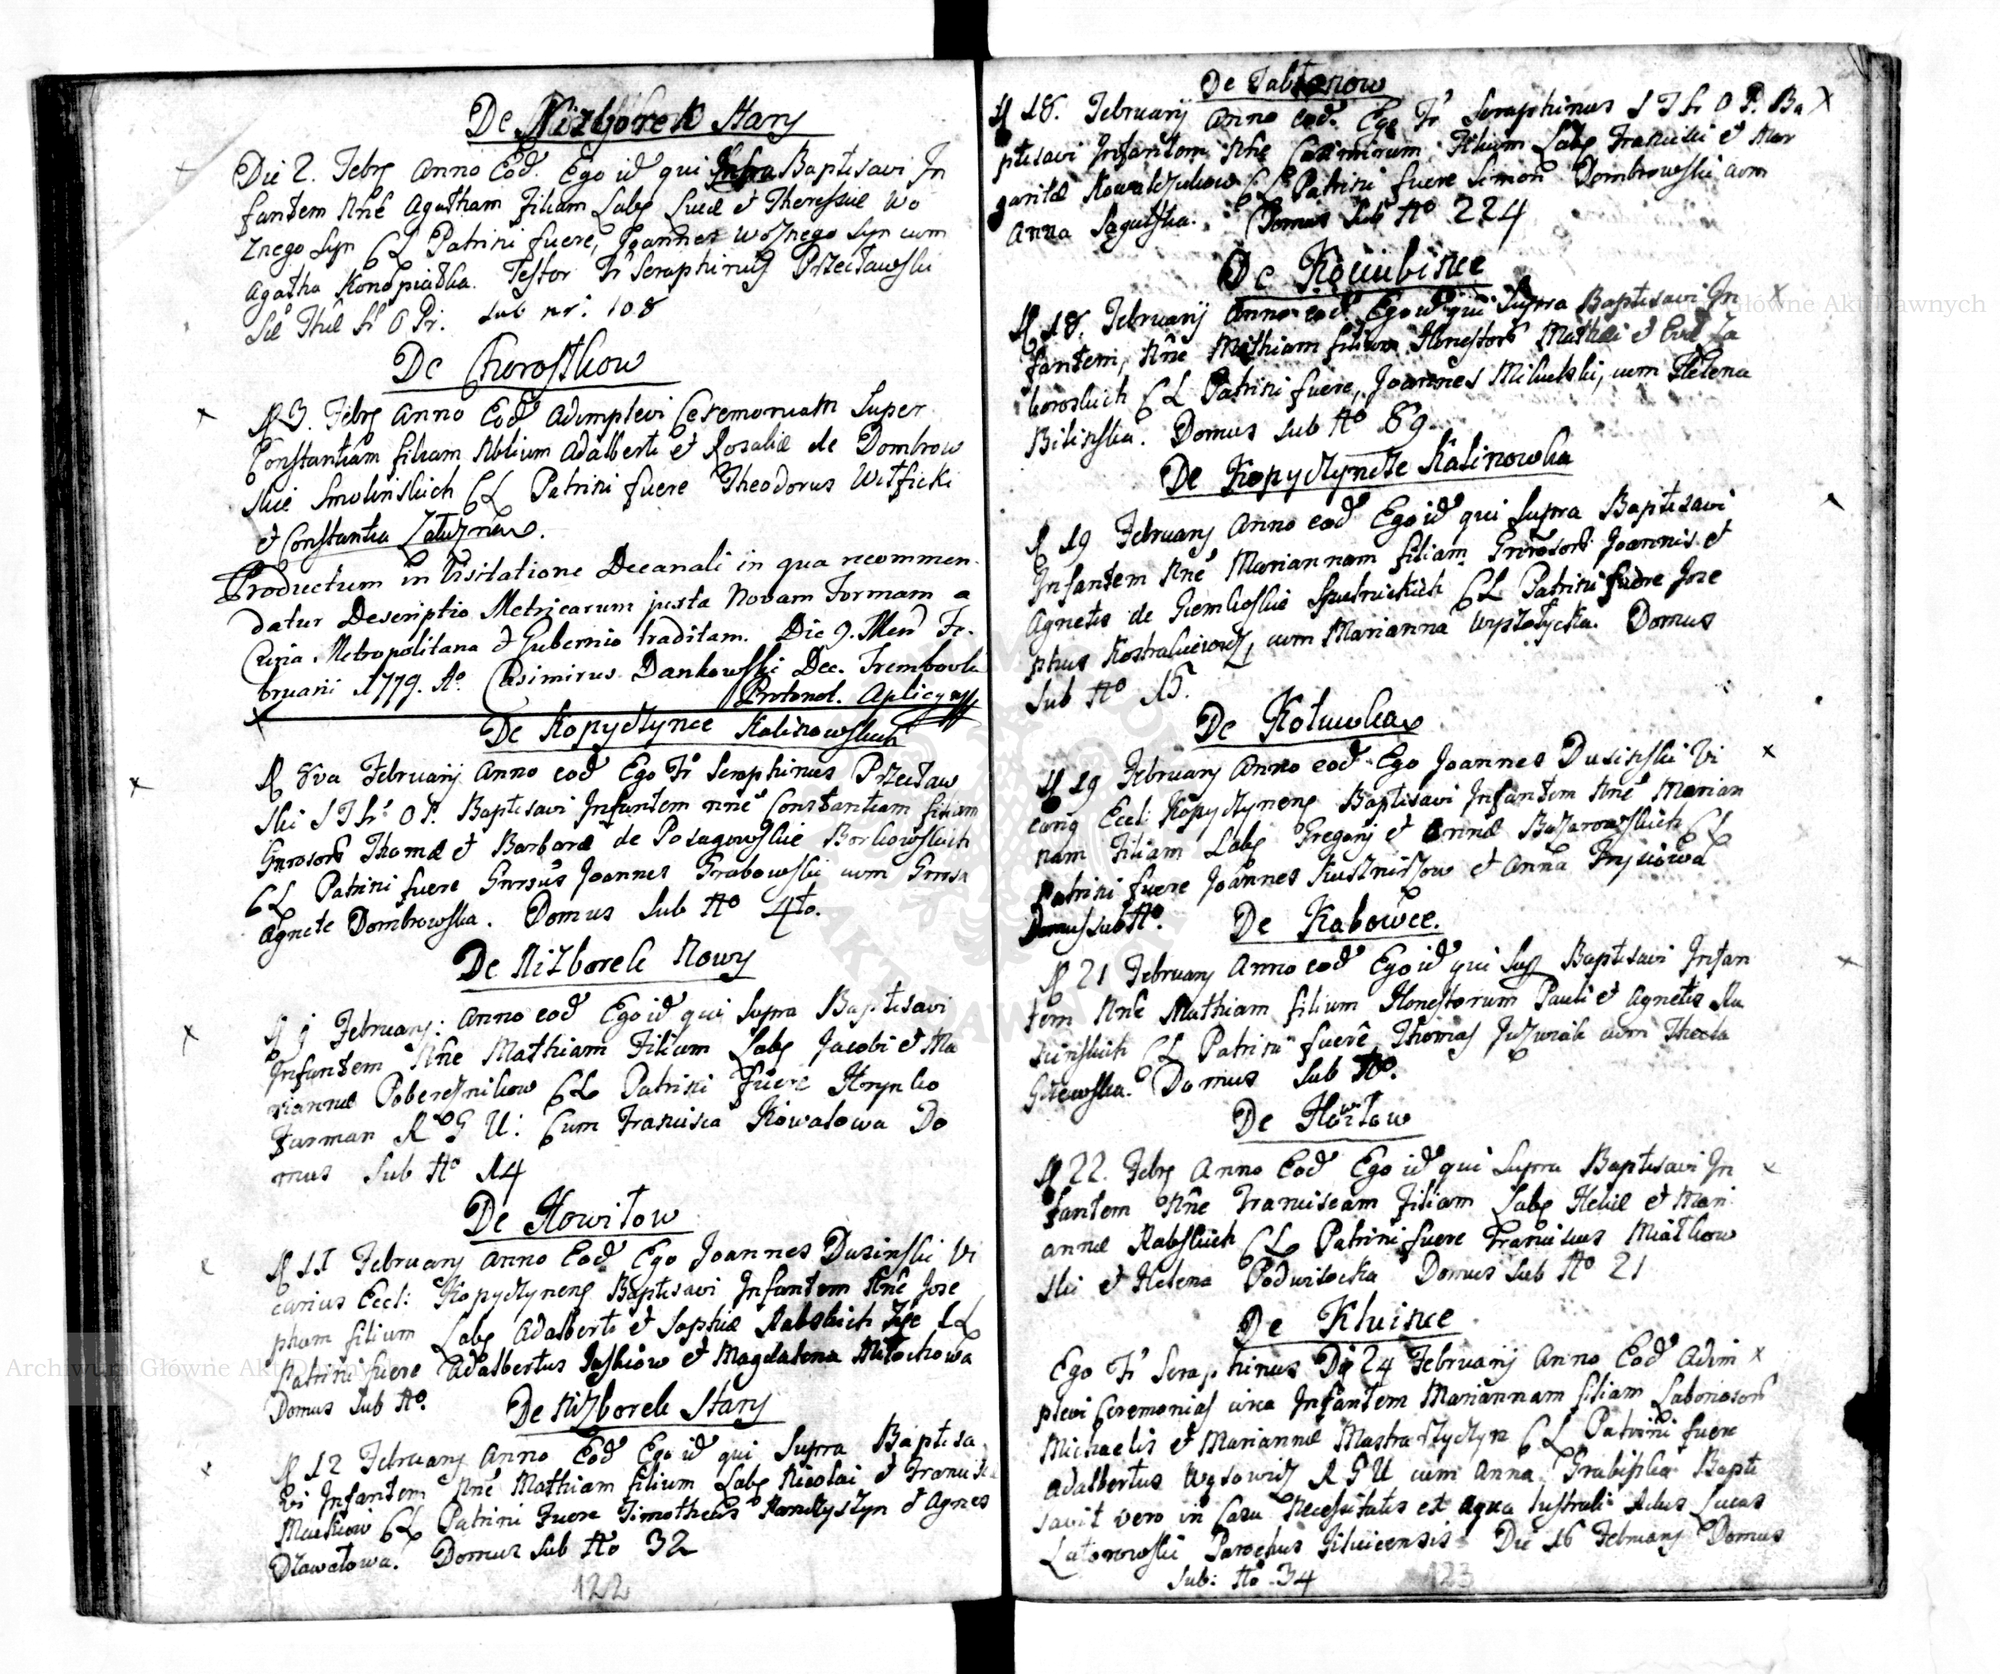 De Nizborek Stary
Die 2. Febr. Anno Eod. Ego id qui Infra Baptisavi In
fantem Nñe Agatham Filiam Lab. Lucæ et Theressiæ Wo
znego Syn CL Patrini fuere, Joannes Woznego Syn cum
Agatha Konopiatka. Testor Fr Seraphinus Przecławski
Sæ Thæ Lr O Pr. sub nr: 108
De Chorostkow
D 3. Febr. Anno Eod. Adimplevi Ceremoniam Super
Constantiam filiam Nblium Adalberti et Rosaliæ de Dombrow
skie Smolinskich CL Patrini fuere Theodorus Witficki
et Constantia
Productum in Visitatione Decanali in qua recommen
datur Descriptio Metricarum juxta Novam Formam a
Curia Metropolitana et Gubernio traditam. Die 9. Men Fe-
bruarii 1779. Ao. Casimirus Dankowski Dec. Trembovla
Protonot. Aplicus
De Kopyczynce Kalinowskich
D 8va Februarij Anno eod Ego Fr Seraphinus Przecław
ski S T Lr O P. Baptisavi Infantem nñe Constantiam filiam
Gnrosorum Thomæ et Barbaræ de Posagowskie Borkowskich
CL Patrini fuere Gnrosus Joannes Grabowski cum Gnrosa
Agnete Dombrowska. Domus Sub No 4to.
De Nizborek Nowy
D 9 February: Anno eod Ego id qui Supra Baptisavi
Infantem Nñe Mathiam Filium Lab. Jacobi et Ma
riannæ Pobereznikow CL Patrini fuere Hrynko
Furman R G U: Cum Francisca Kowalowa Do
mus Sub No 14
De Howiłow
D 11 February Anno Eod Ego Joannes Dusinski Vi
carius Eccl: Kopyczynens Baptisavi Infantem Nñe Jose
phum filium Lab. Adalberti et Sophiæ Rabskich CL
Patrini fuere Adalbertus Jaskiow et Magdalena Mitochowa
Domus Sub No.
De Nizborek Stary
D 12 February Anno Eod Ego id qui Supra Baptisa
vi Infantem Nñe Mathiam filium Lab. Nicolai et Francisca
Maskiow CL Patrini Fuere Timotheus et Agnes
Dzawałowa. Domus Sub No 32
122
De Jabłonow
D 18. Februarij Anno eod. Ego Fr Seraphinus S T Lr O P. Ba
ptisavi Infantem Nñe Casimirum Filium Lab. Francisci et Mar
garitæ Kowalczukow CL Patrini fuere Simon Dombrowski cum
Anna Saguska. Domus Sub No 224
De Kociubince
D 18. Februarij Anno eod. Ego id qui Supra Baptisavi In
fantem, Nñe Mathiam filium Honestorum Mathæi et Evæ Za
horoskich CL Patrini fuere, Joannes Mikulski, cum Helena
Bilinska. Domus sub No 89
De Kopyczyncze Kalinowka
D 19 February Anno eod Ego id qui Supra Baptisavi
Infantem Nñe Mariannam filiam Gnrosorum Joannis et
Agnetis de Ziemkoskie Sputnickich CL Patrini fuere Jose
phus Kostrakiewicz, cum Marianna Wysłotycka. Domus
Sub No 15.
De Kotuwka
D 19 February Anno eod Ego Joannes Dusinski Vi
carius Eccl: Kopyczynens Baptisavi Infantem Nñe Marian
nam Filiam Lab. Gregorij et Annæ Bazarowskich CL
Patrini fuere Joannes Kusznirzow et Anna
Domus Sub No.
De Kabowce.
D 21 February Anno eod Ego id qui Sup Baptisavi Infan
tem Nñe Mathiam filium Honestorum Pauli et Agnetis Ru
sinskich CL Patrini fuere, Thomas Juzwiak cum Thecla
Domus Sub No.
De Howiłow
D 22. Febr. Anno Eod Ego id qui Supra Baptisavi In
fantem Nñe Franciscam Filiam Lab. Heliæ et Mari
annæ Rabskich CL Patrini fuere Franciscus Miałkow
ski et Helena Podwisocka Domus Sub No 21
De Kluince
Ego Fr Seraphinus Die 24 Februarij Anno Eod Adim
plevi Ceremonias circa Infantem Mariannam filiam Laboriosorum
Michaelis et Mariannæ CL Patrini fuere
Adalbertus Wąsowicz R G U cum Anna Grabinska Bapti
savit vero in Casu Necessitatis et aqua lustrali Rdus Lucas
Latorowski Parochus Die 16 February Domus
Sub: No 34
123
Archiwum Główne Akt Dawnych
Główne Akt Dawnych